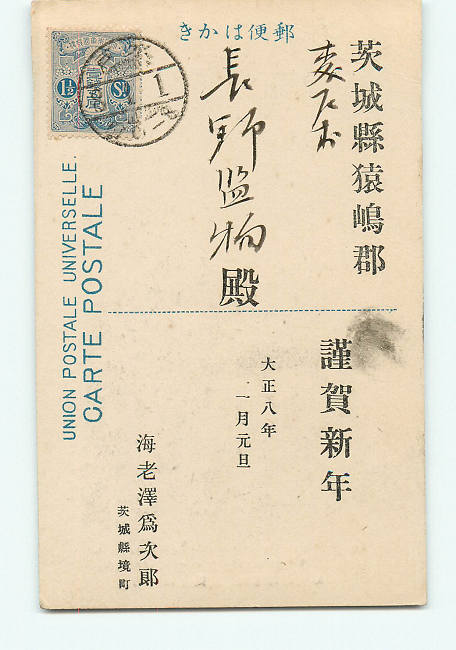 きかは便郵
茨城縣猿嶋郡
長野監物殿
謹賀新年
大正八年
一月元旦
海老澤爲次郎
茨城縣境町
UNION POSTALE UNIVERSELLE.
CARTE POSTALE
1½ Sn
1